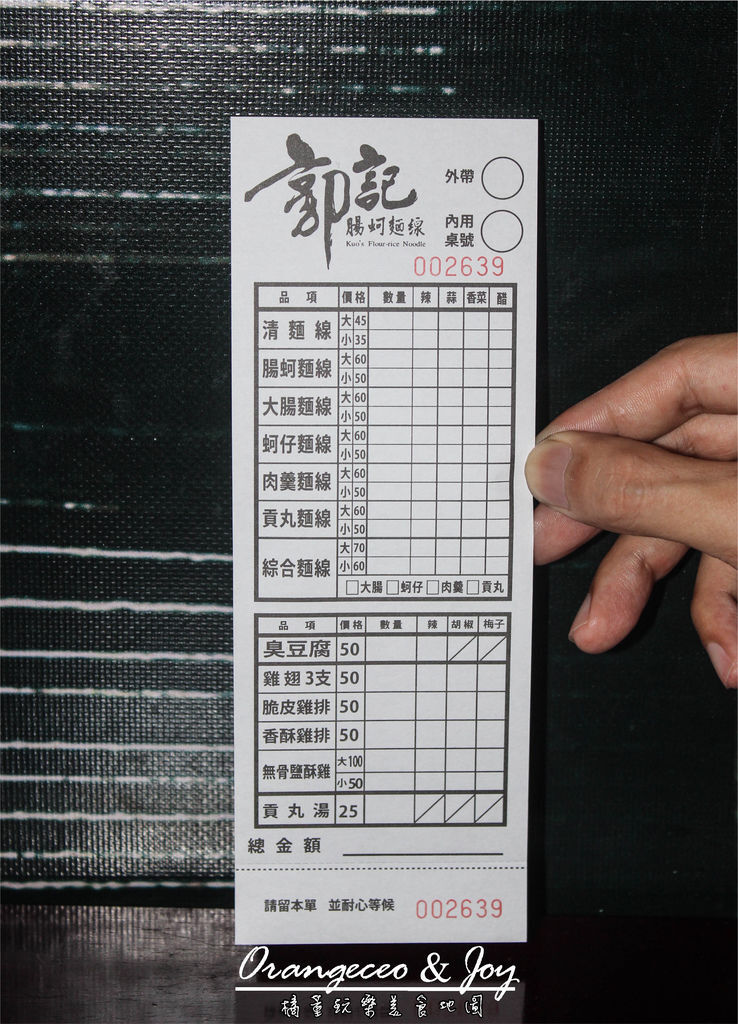 郭記
腸蚵麵線
Kuo's Flour-rice Noodle
外帶
內用
桌號
002639
品 項 價格 數量 辣 蒜 香菜 醋
清麵線 大 45
小 35
腸蚵麵線 大 60
小 50
大腸麵線 大 60
小 50
蚵仔麵線 大 60
小 50
肉羹麵線 大 60
小 50
貢丸麵線 大 60
小 50
綜合麵線 大 70
小 60
□大腸 □蚵仔 □肉羹 □貢丸
品 項 價格 數量 辣 胡椒 梅子
臭豆腐 50
雞翅3支 50
脆皮雞排 50
香酥雞排 50
無骨鹽酥雞 大 100
小 50
貢丸湯 25
總金額
請留本單 並耐心等候 002639
Orangeceo & Joy
橘董玩樂美食地圖